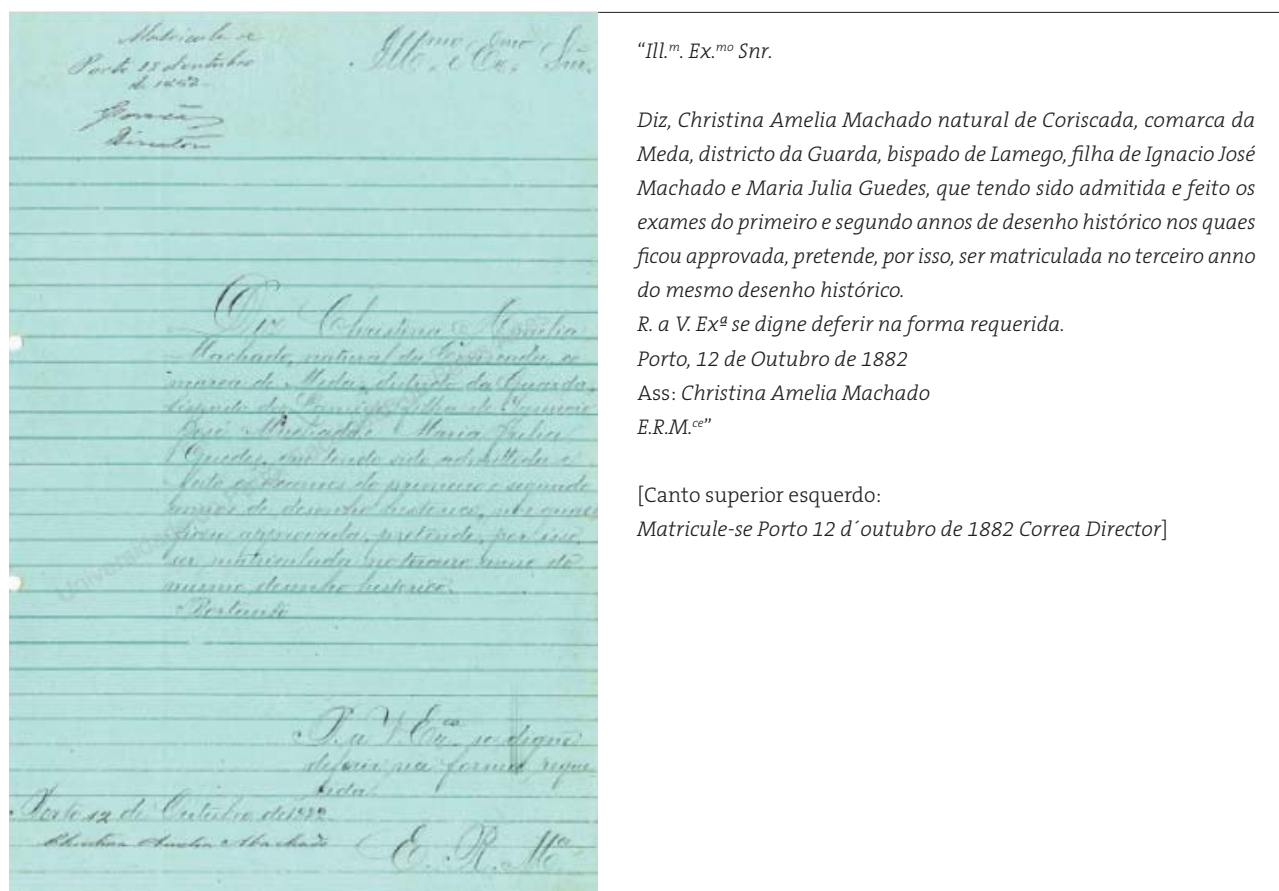 Matricule-se
Porto d'outubro
de 1882
Correa
Director
Ill.mo e Ex.mo Snr.
Diz Christina Amelia
Machado, natural da Coriscada, co
marca de Meda, districto da Guarda,
bispado de Lamego, filha de Ignacio
José Machado e Maria Julia
Guedes, que tendo sido admittida e
feito os exames do primeiro e segundo
annos de desenho historico, nos quaes
ficou approvada, pretende, por isso,
ser matriculada no terceiro anno do
mesmo desenho historico.
Portanto
a V. Ex.ca se digne
deferir na forma reque
rida.
Porto 12 de Outubro de 1882
Christina Amelia Machado
E. R. M.ce
Universidade
“Ill.m. Ex.mo Snr.
Diz, Christina Amelia Machado natural de Coriscada, comarca da
Meda, districto da Guarda, bispado de Lamego, filha de Ignacio José
Machado e Maria Julia Guedes, que tendo sido admitida e feito os
exames do primeiro e segundo annos de desenho histórico nos quaes
ficou approvada, pretende, por isso, ser matriculada no terceiro anno
do mesmo desenho histórico.
R. a V. Exª se digne deferir na forma requerida.
Porto, 12 de Outubro de 1882
Ass: Christina Amelia Machado
E.R.M.ce”
[Canto superior esquerdo:
Matricule-se Porto 12 d´outubro de 1882 Correa Director]